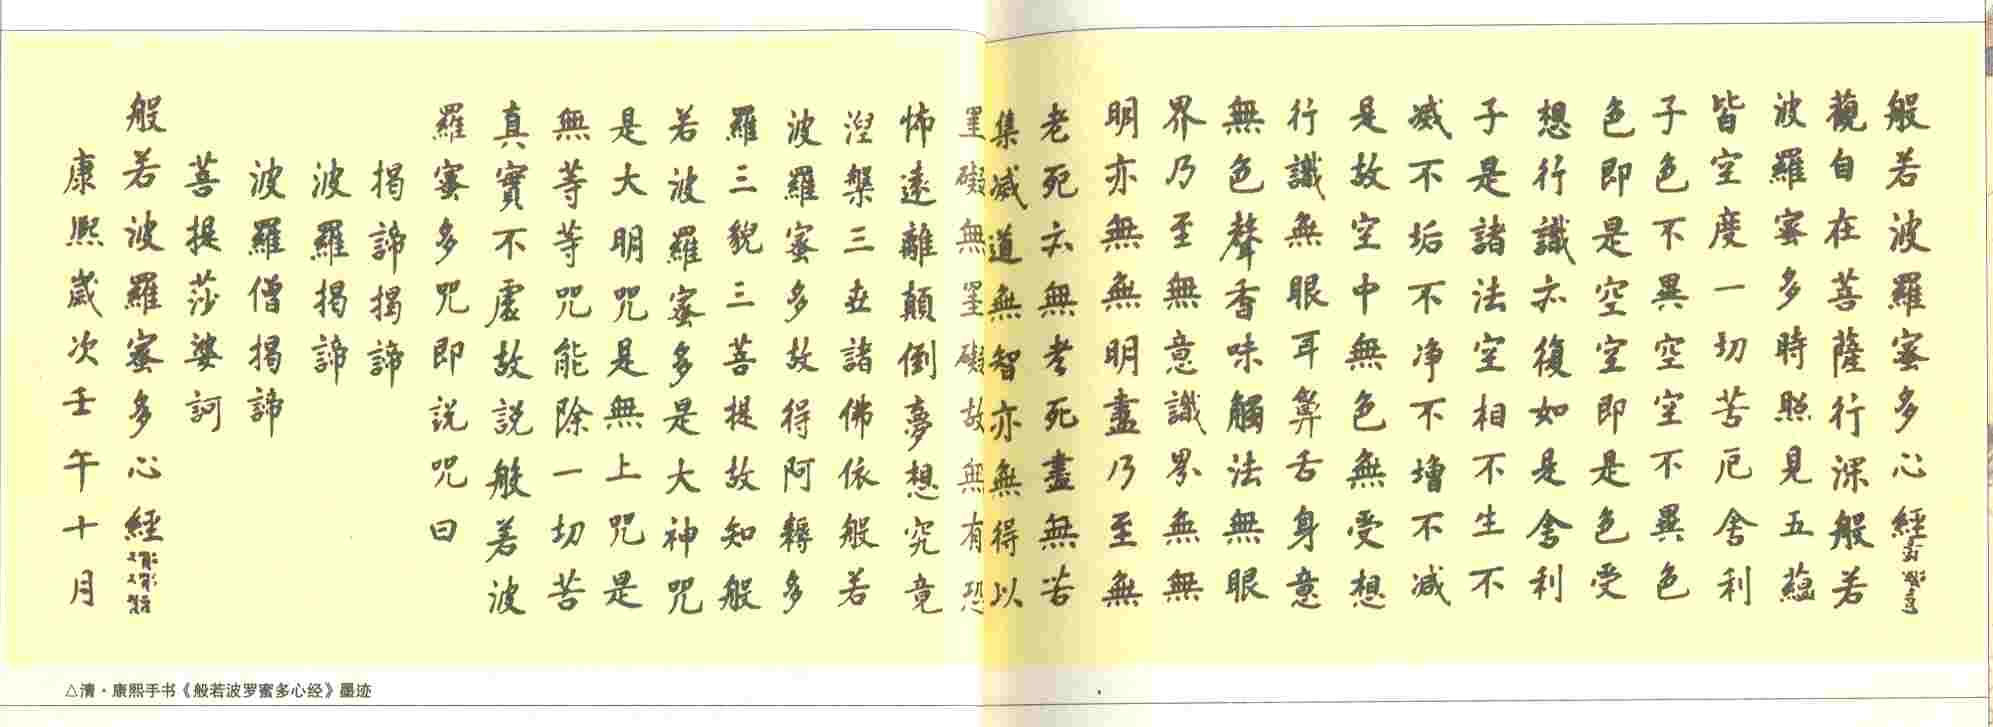 般若波羅蜜多心經
觀自在菩薩行深般若
波羅蜜多時照見五蘊
皆空度一切苦厄舍利
子色不異空空不異色
色即是空空即是色受
想行識亦復如是舍利
子是諸法空相不生不
滅不垢不净不增不减
是故空中無色無受想
行識無眼耳鼻舌身意
無色聲香味觸法無眼
界乃至無意識界無無
明亦無無明盡乃至無
老死亦無老死盡無苦
集滅道無智亦無得以
罣礙無罣礙故無有恐
怖遠離顛倒夢想究竟
涅槃三世諸佛依般若
波羅蜜多故得阿耨多
羅三藐三菩提故知般
若波羅蜜多是大神咒
是大明咒是無上咒是
無等等咒能除一切苦
真實不虛故説般若波
羅蜜多咒即説咒曰
揭諦揭諦
波羅揭諦
波羅僧揭諦
菩提莎婆訶
般若波羅蜜多心經
康熙歲次壬午十月
△清·康熙手书《般若波罗蜜多心经》墨迹